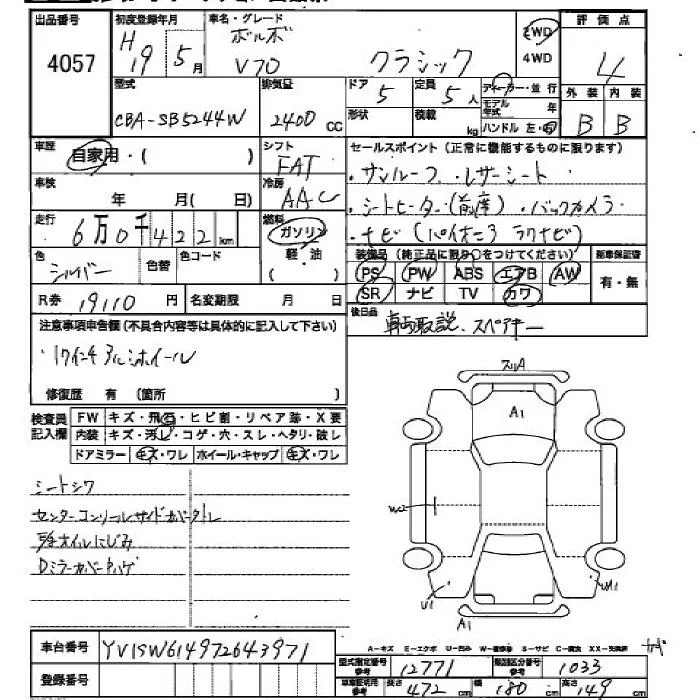 出品番号 初度登録年月 車名・グレード 評価点
4057 H19 5月 ボルボ V70 クラシック 2WD 4WD 4
型式 排気量 ドア 定員 ディーラー・並行 外装 内装
CBA-SB5244W 2400 CC 5 5人 モデル年式 年 B B
形状 積載 kg ハンドル 左・右
車歴 自家用・( ) シフト FAT セールスポイント(正常に機能するものに限ります)
・サンルーフ ・レザーシート
車検 年 月( 日) 冷房 AAC
・シートヒーター(前席) ・バックカメラ
走行 6万0千422km 燃料 ガソリン 軽・油
・ナビ(パイオニア ラクナビ)
色 シルバー 色替 色コード
装備品(純正品に限り○をつけてください) 新車保証書
PS PW ABS エアB AW 有・無
SR ナビ TV カワ
R券 19110円 名変期限 月 日
後日品 車両取説、スペアキー
注意事項申告欄(不具合内容等は具体的に記入して下さい)
・17インチアルミホイール
修復歴 有 (箇所 )
検査員記入欄 FW キズ・飛石・ヒビ割・リペア跡・X要
内装 キズ・汚レ・コゲ・穴・スレ・ヘタリ・破レ
ドアミラー キズ・ワレ ホイール・キャップ キズ・ワレ
シートシワ
センターコンソールサイドカバー
オイルにじみ
Dミラーカバーハゲ
スリA
A1
W2
U1
A1
車台番号 YV1SW614972643971
A-キズ E-エクボ U-凹み S-サビ C-腐食
登録番号
型式指定番号参考 12771 類別区分番号参考 1033
車庫証明用参考 長さ 472cm 幅 180cm 高さ 149cm